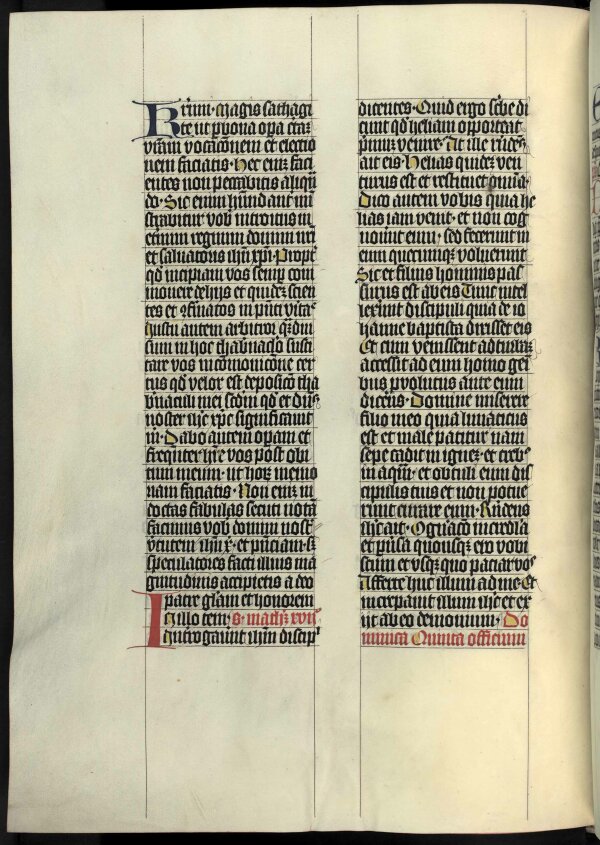 Frum magis sathagi
te ut p bona opa ctaz
vram vocaconem et electio
nem faciatis. Hec enim faci
entes non peccabitis aliqn
do. Sic enim habund ant mi
strabitur vob introitus in
etnum regnum domini nri
et saluatoris ihu xpi. Propt
qd incipiam vos semp com
monere de hys et quidez scien
tes et 9firmatos in pnti vitate
Justu autem arbitror qmdiu
sum in hoc thabnaclo susci
tare vos in comonicone cer
tus qd velox est deposico tha
bnaculi mei scdm qd et dns
noster ihc xpc significauit
m. Dabo autem opam et
frequnter hre vos post obi
tum meum. ut hoz memo
riam faciatis. Non enim in
doctas fabulas secuti nota
facimus vob domini nostri
vtutem ihu x. et pnciam. sz
speculatores facti illius ma
gnitudinis accipietis a deo
patre glam et honorem
In illo tem. s. mathz xvii
Intrrogauut ihm discip
dicentes. Quid ergo scbe di
cunt qd heliam opporteat
primuz venire. At ille rndens
ait eis. Helias quidez ven
turus est et restituet omia.
Dico autem vobis quia he
lias iam venit. et non cog
nouut eum. sed fecerunt in
eum quecumqz voluerunt
Sic et filius hominis pas
surus est ab eis Tunc intel
lexerut discipuli quia de io
hanne baptista dixisset eis
Et cum venissent ad turbaz
accessit ad eum homo geni
bus pvolutus ante eum
dicens. Domine miserere
filio meo quia lunaticus
est et male patitur nam
sepe cadit in ignez. et crebro
in aqm. et obtuli eum dis
cipulis tuis et non potue
runt curare eum. Rndens
ihc ait. O gnaco incredla
et pusa quousqz ero vobi
scum et vsqz quo patiar vos
Afferte huc illum ad me. Et
increpauit illum ihc et ex
ijt ab eo demonium. Do
minica Quinta officium